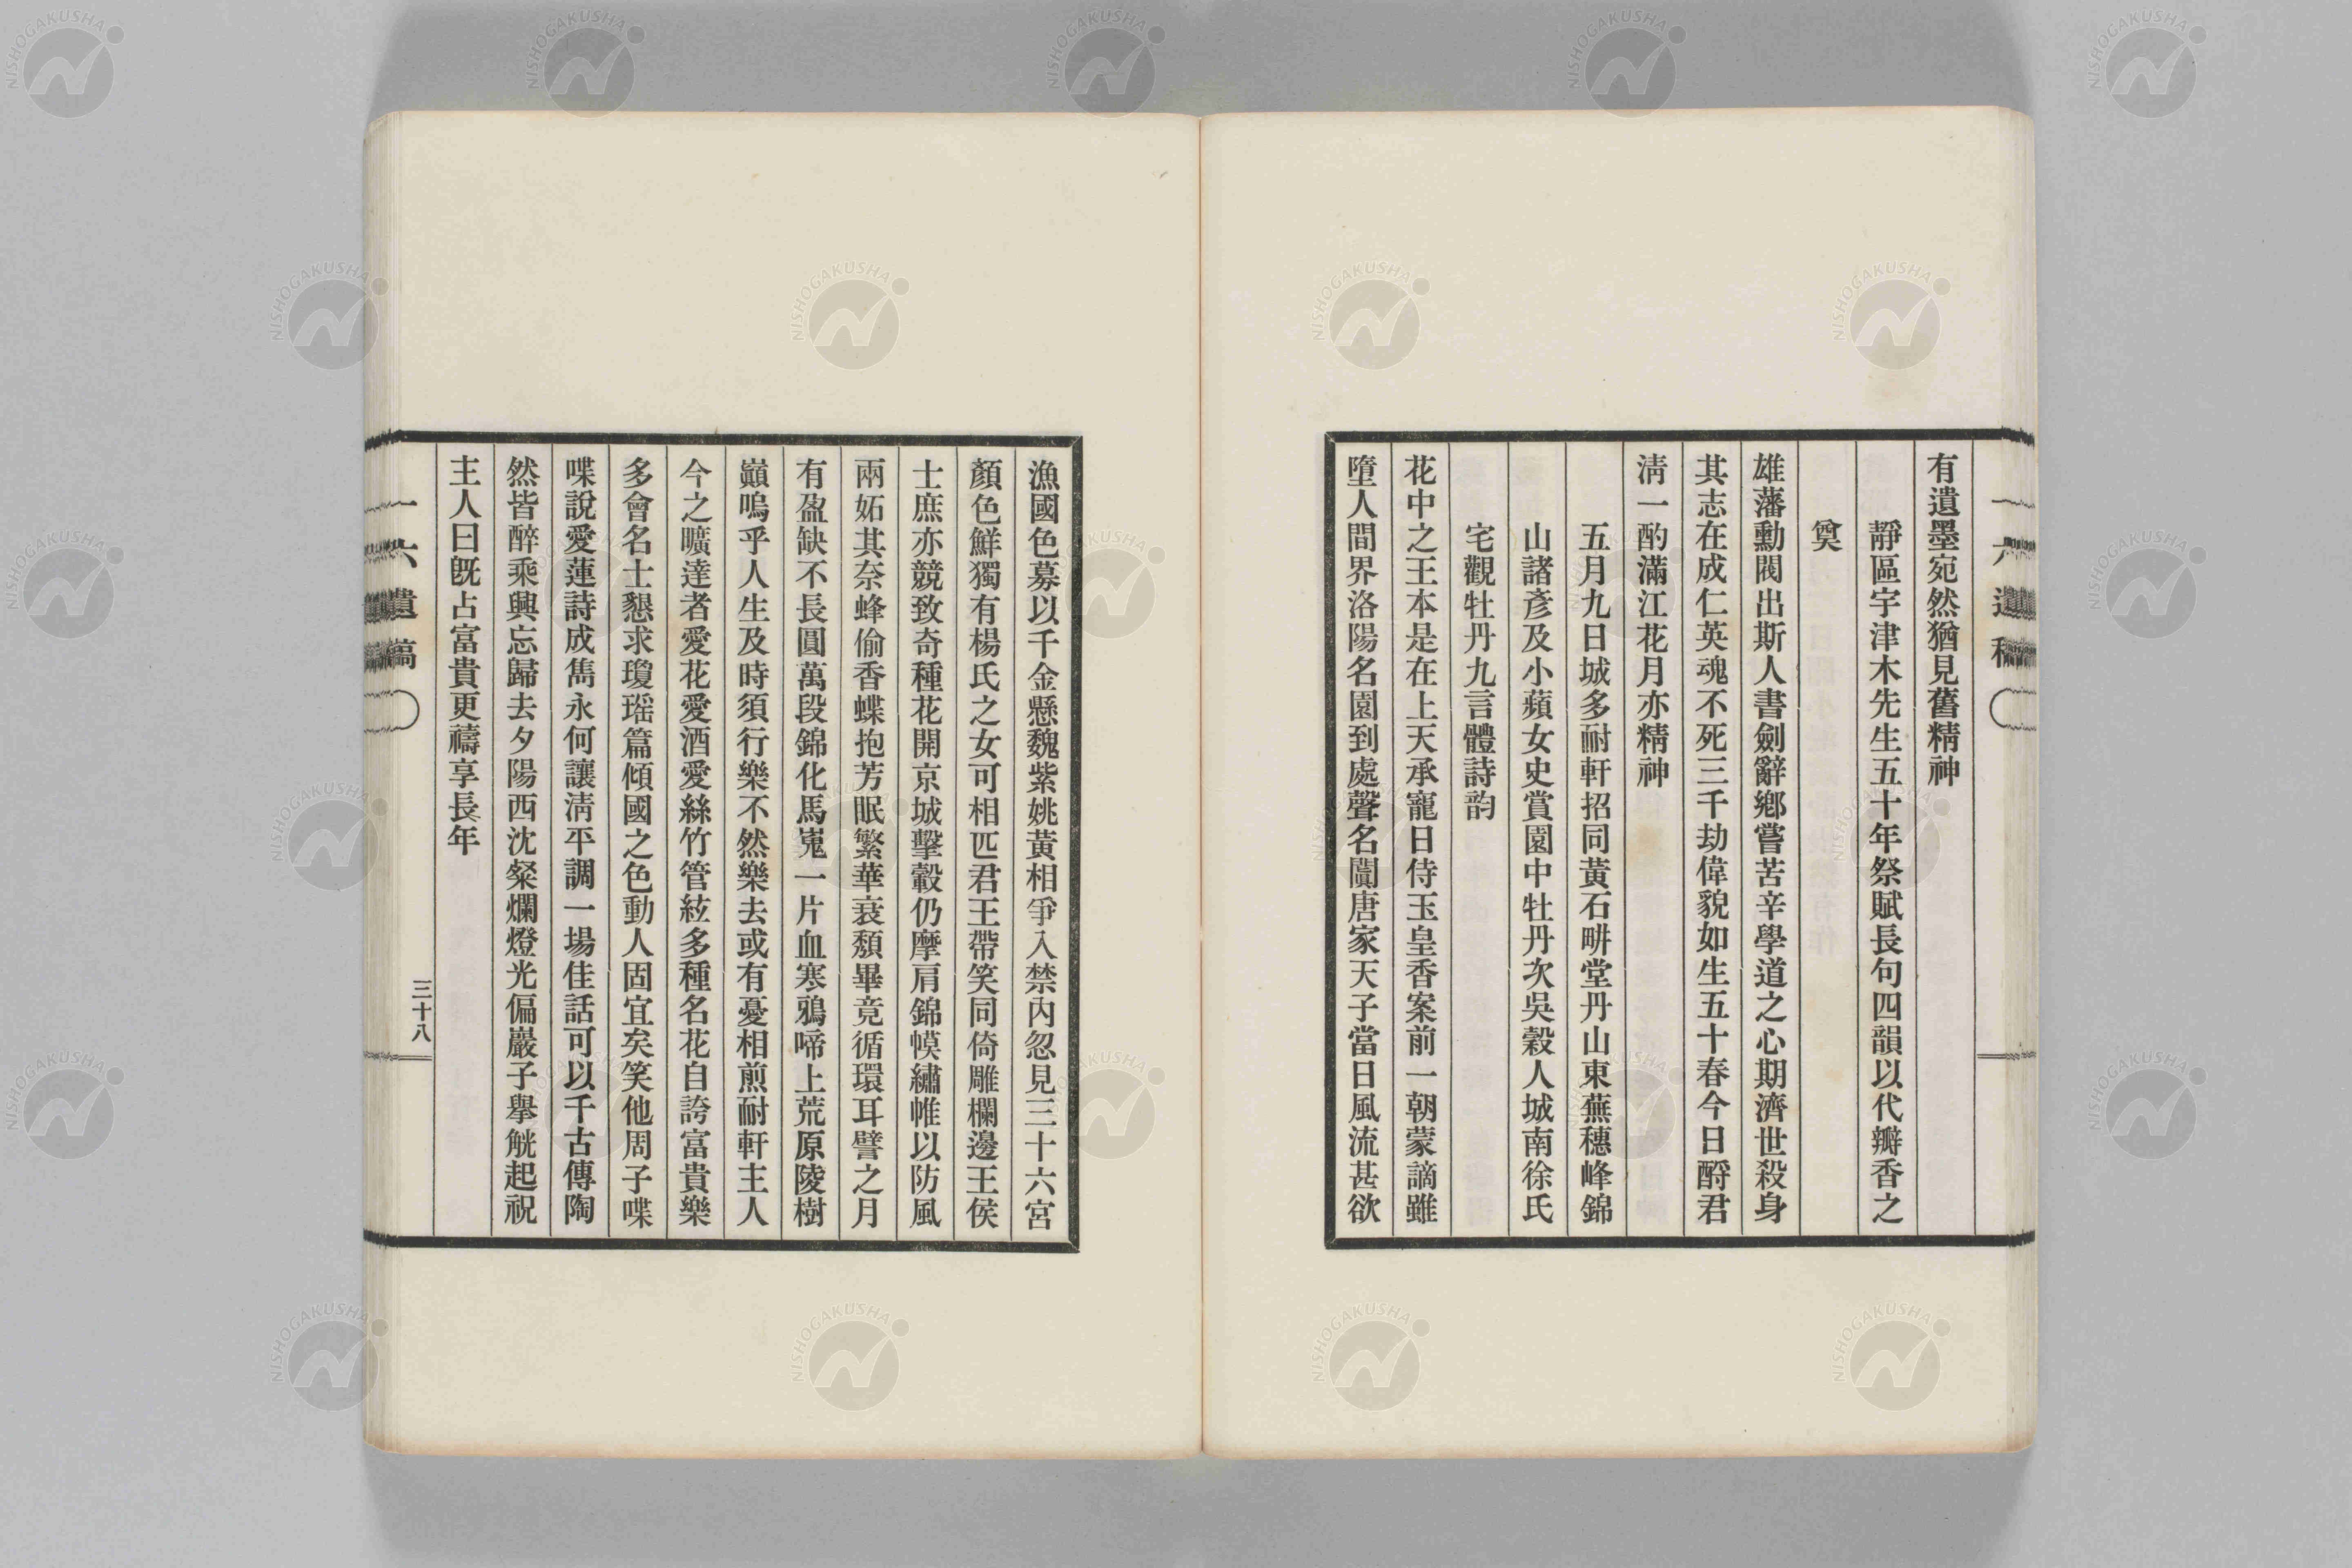 有遺墨宛然猶見舊精神
靜區宇津木先生五十年祭賦長句四韻以代瓣香之
奠
雄藩勳閥出斯人書劍辭鄕嘗苦辛學道之心期濟世殺身
其志在成仁英魂不死三千劫偉貌如生五十春今日酹君
淸一酌滿江花月亦精神
五月九日城多耐軒招同黃石畊堂丹山東蕪穗峰錦
山諸彥及小蘋女史賞園中牡丹次吳穀人城南徐氏
宅觀牡丹九言體詩韵
花中之王本是在上天承寵日侍玉皇香案前一朝蒙謫雖
墮人間界洛陽名園到處聲名闐唐家天子當日風流甚欲
漁國色募以千金懸魏紫姚黃相爭入禁內忽見三十六宮
顏色鮮獨有楊氏之女可相匹君王帶笑同倚雕欄邊王侯
士庶亦競致奇種花開京城擊轂仍摩肩錦幙繡帷以防風
兩妬其奈蜂偷香蝶抱芳眠繁華衰頹畢竟循環耳譬之月
有盈缺不長圓萬段錦化馬嵬一片血寒鴉啼上荒原陵樹
巓嗚乎人生及時須行樂不然樂去或有憂相煎耐軒主人
今之曠達者愛花愛酒愛絲竹管絃多種名花自誇富貴樂
多會名士懇求瓊瑶篇傾國之色動人固宜矣笑他周子喋
喋說愛蓮詩成雋永何讓淸平調一場佳話可以千古傳陶
然皆醉乘興忘歸去夕陽西沈粲爛燈光偏巖子擧觥起祝
主人曰旣占富貴更禱享長年
一六遺稿
三十八
一六遺稿
NISHOGAKUSHA